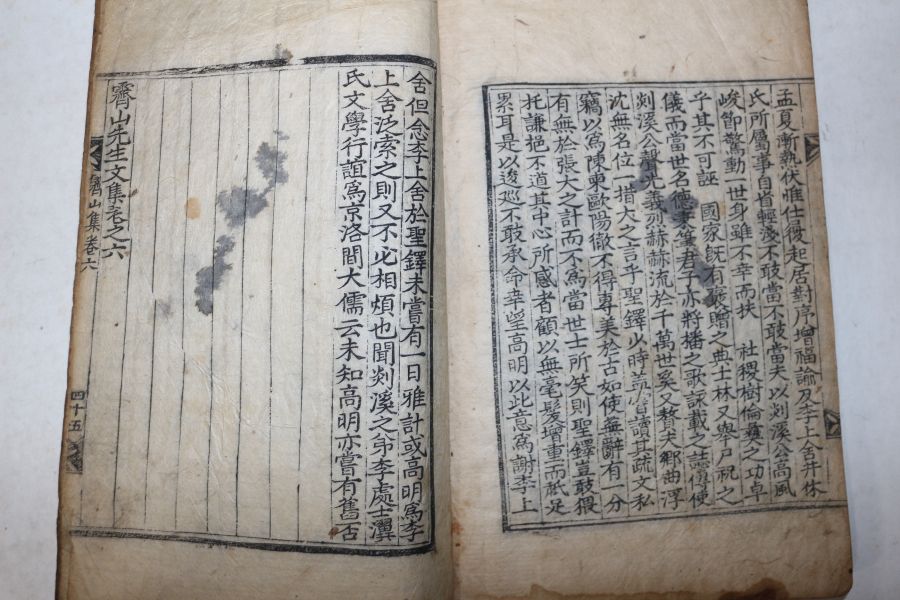 孟夏漸熱伏惟仕優起居對序增福諭及李上舍井休
氏所屬事自省輕淺不敢當不敢當夫以剡溪公高風
峻節驚動一世身雖不幸而扶 社稷樹倫彝之功卓
乎其不可誣 國家旣有褒贈之典士林又舉尸祝之
儀而當世名德李筆君子亦將播之歌詠載之誌傳使
剡溪公毅光義烈赫赫流於千萬世奚又贅夫鄉曲浮
沈無名位一措大之言乎聖鐸少時盖嘗讀其疏文私
竊以爲陳東歐陽徹不得專美於古如使無辭有一分
有無於張大之計而不爲當世士所笑則聖鐸豈敢猥
托謙挹不道其中心所感者顧以無毫髮增重而祗足
累耳是以逡巡不敢承命幸望高明以此意爲謝李上
舍但念李上舍於聖鐸未嘗有一日雅計或高明爲李
上舍泛索之則又不必相煩也聞剡溪之弟李處士瀷
氏文學行誼爲京洛間大儒云未知高明亦嘗有舊否
霽山先生文集卷之六
霽山集 卷六
四十五